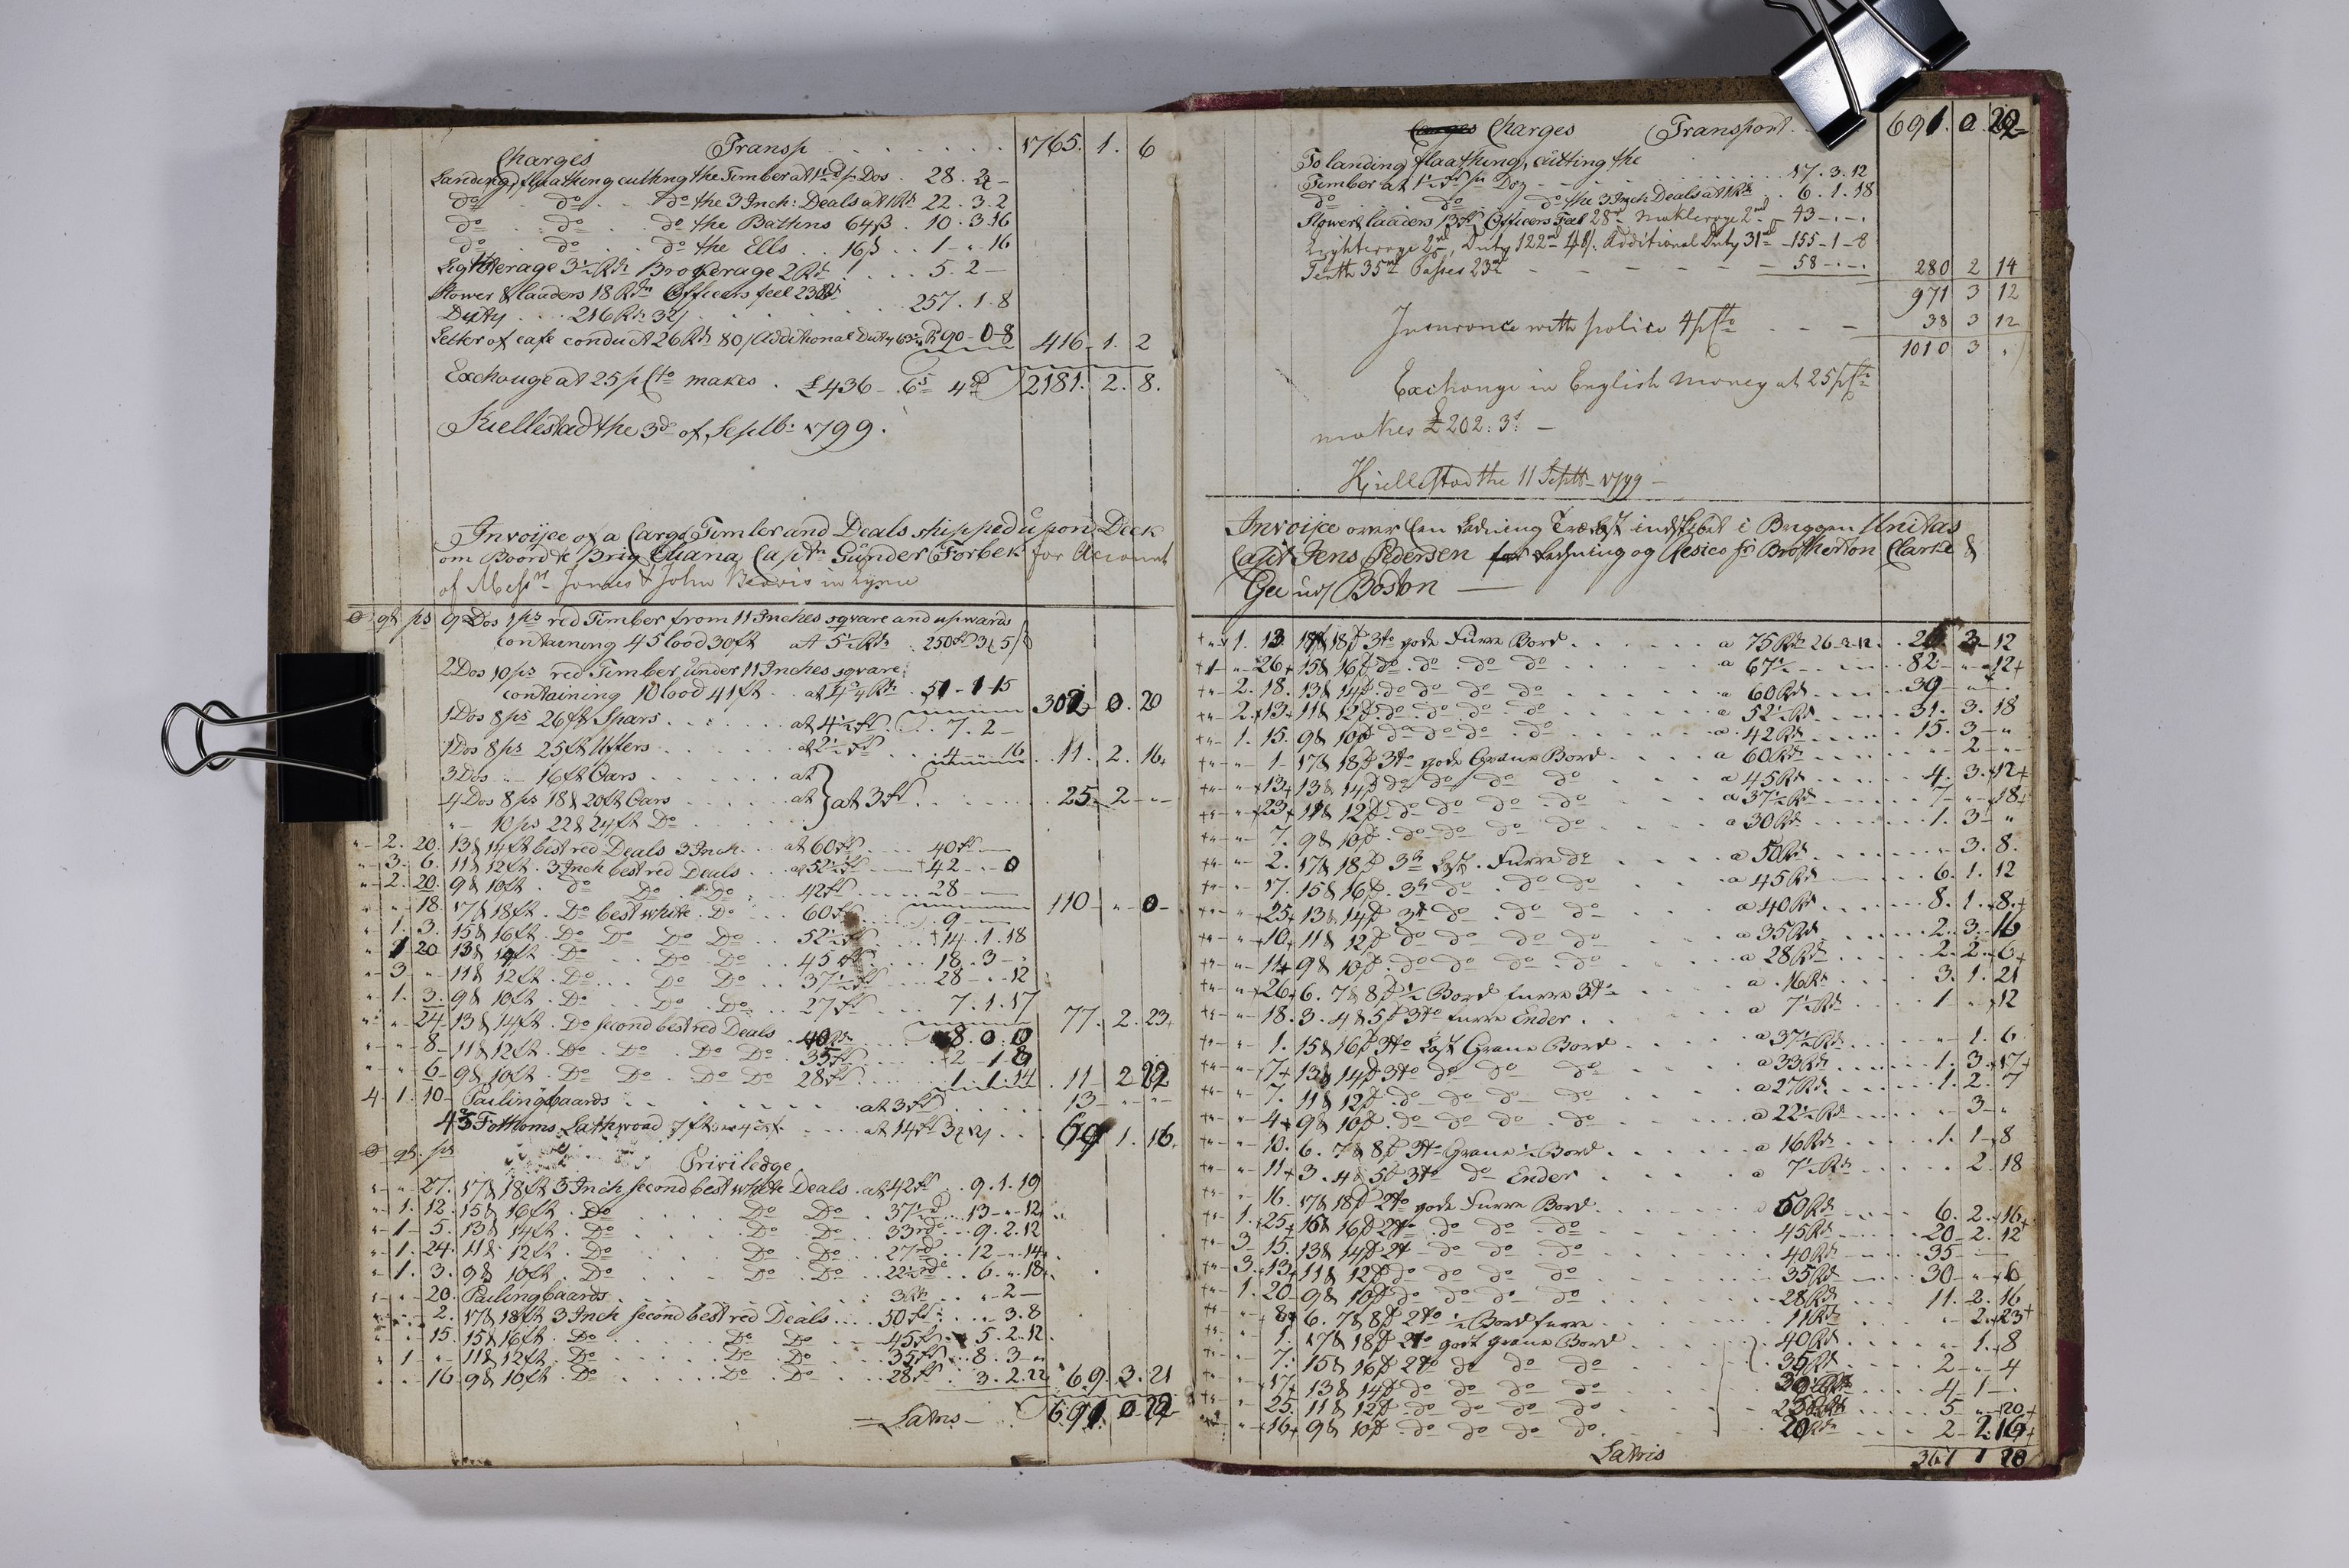 Charges Transp . . . . . . . 1765. 1. 6
Landing, flaathing cutting the Timber at 1½d p Dos . 28. 2 -
do . do . . do the 3 Inch: Deals at 1 Rd 22. 3. 2
do . . do . . do the Battens 64ß . 10. 3. 16
do . . do . . do the Ells . . 16ß . . 1 - " - 16
Lighterage 3½ Rd: Brokerage 2 Rd . . . . 5. 2 -
Stower & laaders 18 Rdn Officers feel 23 Rd
Duty . . . 216 Rd: 32ß . . . . . . 257. 1. 8
Letter of cafe conduct 26 Rd: 80ß Additional Duty 63½ R 90 - 0 - 8 416. 1. 2
Exchange at 25 p Cto makes . £436 - 6s 4d 2181. 2. 8.
Kiellestad the 3d of Septb: 1799.
Invoijce of a Cargo Timler and Deals shipped upon Deck
om Boord te Brig Eliana Captn Gunder Torbek for Account
of Messrs James & John Beavis in Lynn
qt ps 9 Dos 1 ps red Timber from 11 Inches sqvare and upwards
containing 45 lood 30 ft at 5½ Rd: . 250
2 Dos 10 ps red Timber under 11 Inches sqvare:
containing 10 lood 41 ft . . at 4¾ Rd: . 51 - 1 - 15 302 0. 20
1 Dos 8 ps 26 ft Spars . . . . . . at 4½ . . 7. 2 -
1 Dos 8 ps 25 ft Uffers . . . . . at 2½ . . 4 - " - 16 . 11. 2. 16
3 Dos - " 16 ft Oars . . . . . . at
4 Dos 8 ps 18 & 20 ft Oars . . . . . at } at 3 . . . . . . 25. 2 - " -
" - 10 ps 22 & 24 ft Do
" - 2. 20. 13 & 14 ft best red Deals 3 Inch . . . at 60 . . . . 40
" 3. 6. 11 & 12 ft . 3 Inch best red Deals . . at 52½ . . . 42 . - 0
" 2. 20. 9 & 10 ft . do Do . Do . 42 . . . . 28 - " - 110 - " - 0 -
" " 18. 17 & 18 ft . Do best white . Do . . . 60 . . . . 9 - " -
" 1. 3. 15 & 16 ft . Do Do Do Do . . 52½ . . . 14. 1. 18
" 1 20 13 & 14 ft . Do . . Do . Do . . 45 . . . 18. 3 -
" 3 - " 11 & 12 ft . Do . . . Do Do Do . . 37½ . . . 28 - . - 12
" 1. 3. 9 & 10 ft . Do . . Do . Do . . 27 . . . 7. 1. 17 77. 2. 23
" " 24 13 & 14 ft . Do second best red Deals 40 . . . 8. 0. 0
" " 8 11 & 12 ft . Do . Do . Do Do 35 . . . 2 - 1 8
" " 6 9 & 10 ft . Do Do . Do Do 28 . . . 1. 1. 14 . 11 2 22
4. 1. 10 Pailingbaards . . . . . . . . at 3 . . . . 13 - " -
Fothoms Lathwood 7 ft . . . at 14 . . . 69 1. 16.
qt. ps Priviledge
" " 27. 17 & 18 ft 3 Inch second best white Deals . at 42 . 9. 1. 19
" 1. 12. 15 & 16 ft . Do Do Do . 37½ . . 13 - " - 12
" 1 - 5. 13 & 14 ft . Do Do . Do . . 33rd . . . 9. 2. 12
" 1. 24. 11 & 12 ft . Do Do . Do . . 27rd . . 12 - " - 14
" 1. 3. 9 & 10 ft . Do . . . Do . Do . . 22½rd . . 6. " - 18
" " 20. Pailingbaards . . . . . . . 3 . . " - 2 -
" " 2. 17 & 18 ft 3 Inch second best red Deals . . . 50 . . . 3. 8
" . 15. 15 & 16 ft . Do . . . . Do Do . . 45 . . 5. 2. 12.
" 1 - " 11 & 12 ft . Do . . . . Do . Do . . 35 . . 8. 3 - "
" . 16. 9 & 10 ft . Do . . . . Do . Do . . 28 . . 3. 2. 22 69. 3. 21
= Latris - 691. 0 22
Charges Transport . . 691. 0 22
To landing flaathing, cutting the
Timber at 1½ pr Doz - - . . . . . 17. 3. 12
do . . do . . do the 3 Inch Deals at 1 Rd . . 6. 1. 18
Stower & laaders 13 Officers Feel 28 Maklerage 2nd - 43 - . - .
Lighterage 2nd, Duty 122nd 48ß. Additional Duty 31nd - 155 - 1 - 8
Tenth 35nd Passes 23nd - - - - - - 58 - . - . 280 2 14
971 3 12
Insurance with police 4 p Cto . - - 38 3 12
1010 3 "
Exchange in English money at 25 p Cto
makes £202: 3s. -
Kiellestad the 11 Septb - 1799 -
Invoijce over Een Ladning Trælast indskibet i Briggen Unitas
Capt Jens Pedersen for Ladning og Resico fr Brotherton Clarke &
Gee udj Boston -
1. 13 17 & 18 f 3to gode Furre Bord . . . . . a 75 Rd 26-2-12 . 26 3 - 12
1 - " - 26 15 & 16 f do . do do do a 67½ . . . . . 82 - " - 12
" 2. 18. 13 & 14 f . do do do do a 60 Rd . . . . 39 - " -
" 2. 13 11 & 12 f . do . do . do . do . a 52½ Rd . . . . 31. 3. 18
" 1. 15. 9 & 10 f do do do . do a 42 Rd . . . . 15. 3 - "
" " 1 - 17 & 18 f 3to gode Grane Bord . . . . a 60 Rd . . . . " - 2 - "
" " 13 13 & 14 f do do do do a 45 Rd . . . . 4. 3. 12
" " 23 11 & 12 f do do do . do a 37½ Rd . . . . 7 - " - 18
" " 7. 9 & 10 f . do do do do a 30 Rd . . . . 1. 3 - "
" " 2. 17 & 18 f 3to Last . Furre do a 50 Rd . . . . " 3. 8.
" " 17. 15 & 16 f . 3to do . do do a 45 Rd . . . . 6. 1. 12
" " 25 13 & 14 f 3to do . do do a 40 Rd . . . . 8. 1. 8.
" " 10 11 & 12 f do do do do a 35 Rd . . . . 2. 3. 16
" " 11 9 & 10 f . do do do do a 28 Rd . . . . 2. 2. 6
" " 26 6. 7 & 8 f ½ Bord furre 3to a . 16 Rd . . . . 3. 1. 21
" " 18. 3. 4 & 5 f 3to furre Ender . a 7½ Rd . . . . 1 " 12
" " 1. 15 & 16 f 3to Last Grane Bord . . . . a 37½ Rd . . . . " 1. 6
" " 7 13 & 14 f 3to do do do a 33 Rd . . . . 1. 3. 17
" " 7. 11 & 12 f . do do do do . a 27 Rd . . . . 1. 2. 7
" " 4 9 & 10 f . do do do . do a 22½ Rd . . . . " 3 - "
" " 10. 6. 7 & 8 f 3to Grane ½ Bord . . . . a 16 Rd . . . . 1. 1 - 8
" " 11 3. 4 & 5 f 3to do Ender . . . . a 7½ Rd . . . . 2. 18
" " 16. 17 & 18 f 2to gode Furre Bord 50 Rd . . . . 6. 2. 16
" 1. 25 15 & 16 f 2to do do do 45 Rd . . . . 20 - 2. 12
" 3 - 15. 13 & 14 f 2to do do do 40 Rd . . . . 35 - " -
" 3. 13 11 & 12 f do do do do 35 Rd . . . . 30 - " - 6
" 1. 20 9 & 10 f do do do do 28 Rd . . . . 11. 2. 16
" " 8 6. 7 & 8 f 2to ½ Bord furre . . . . 11 Rd . . . . " 2. 23
" " 1. 17 & 18 f 2to godt grane Bord 40 Rd . . . . " 1. 8
" " 7. 15 & 16 f 2to do do do 35 Rd . . . . 2 - " - 4
" " 17 13 & 14 f do do do do . . . . 4 - 1 - .
" " 25. 11 & 12 f do do do do . . . . 5 - " - 20
" " 16 9 & 10 f . do do do do . 20 Rd . . . . 2 - 2. 16
Latris 367 1 20